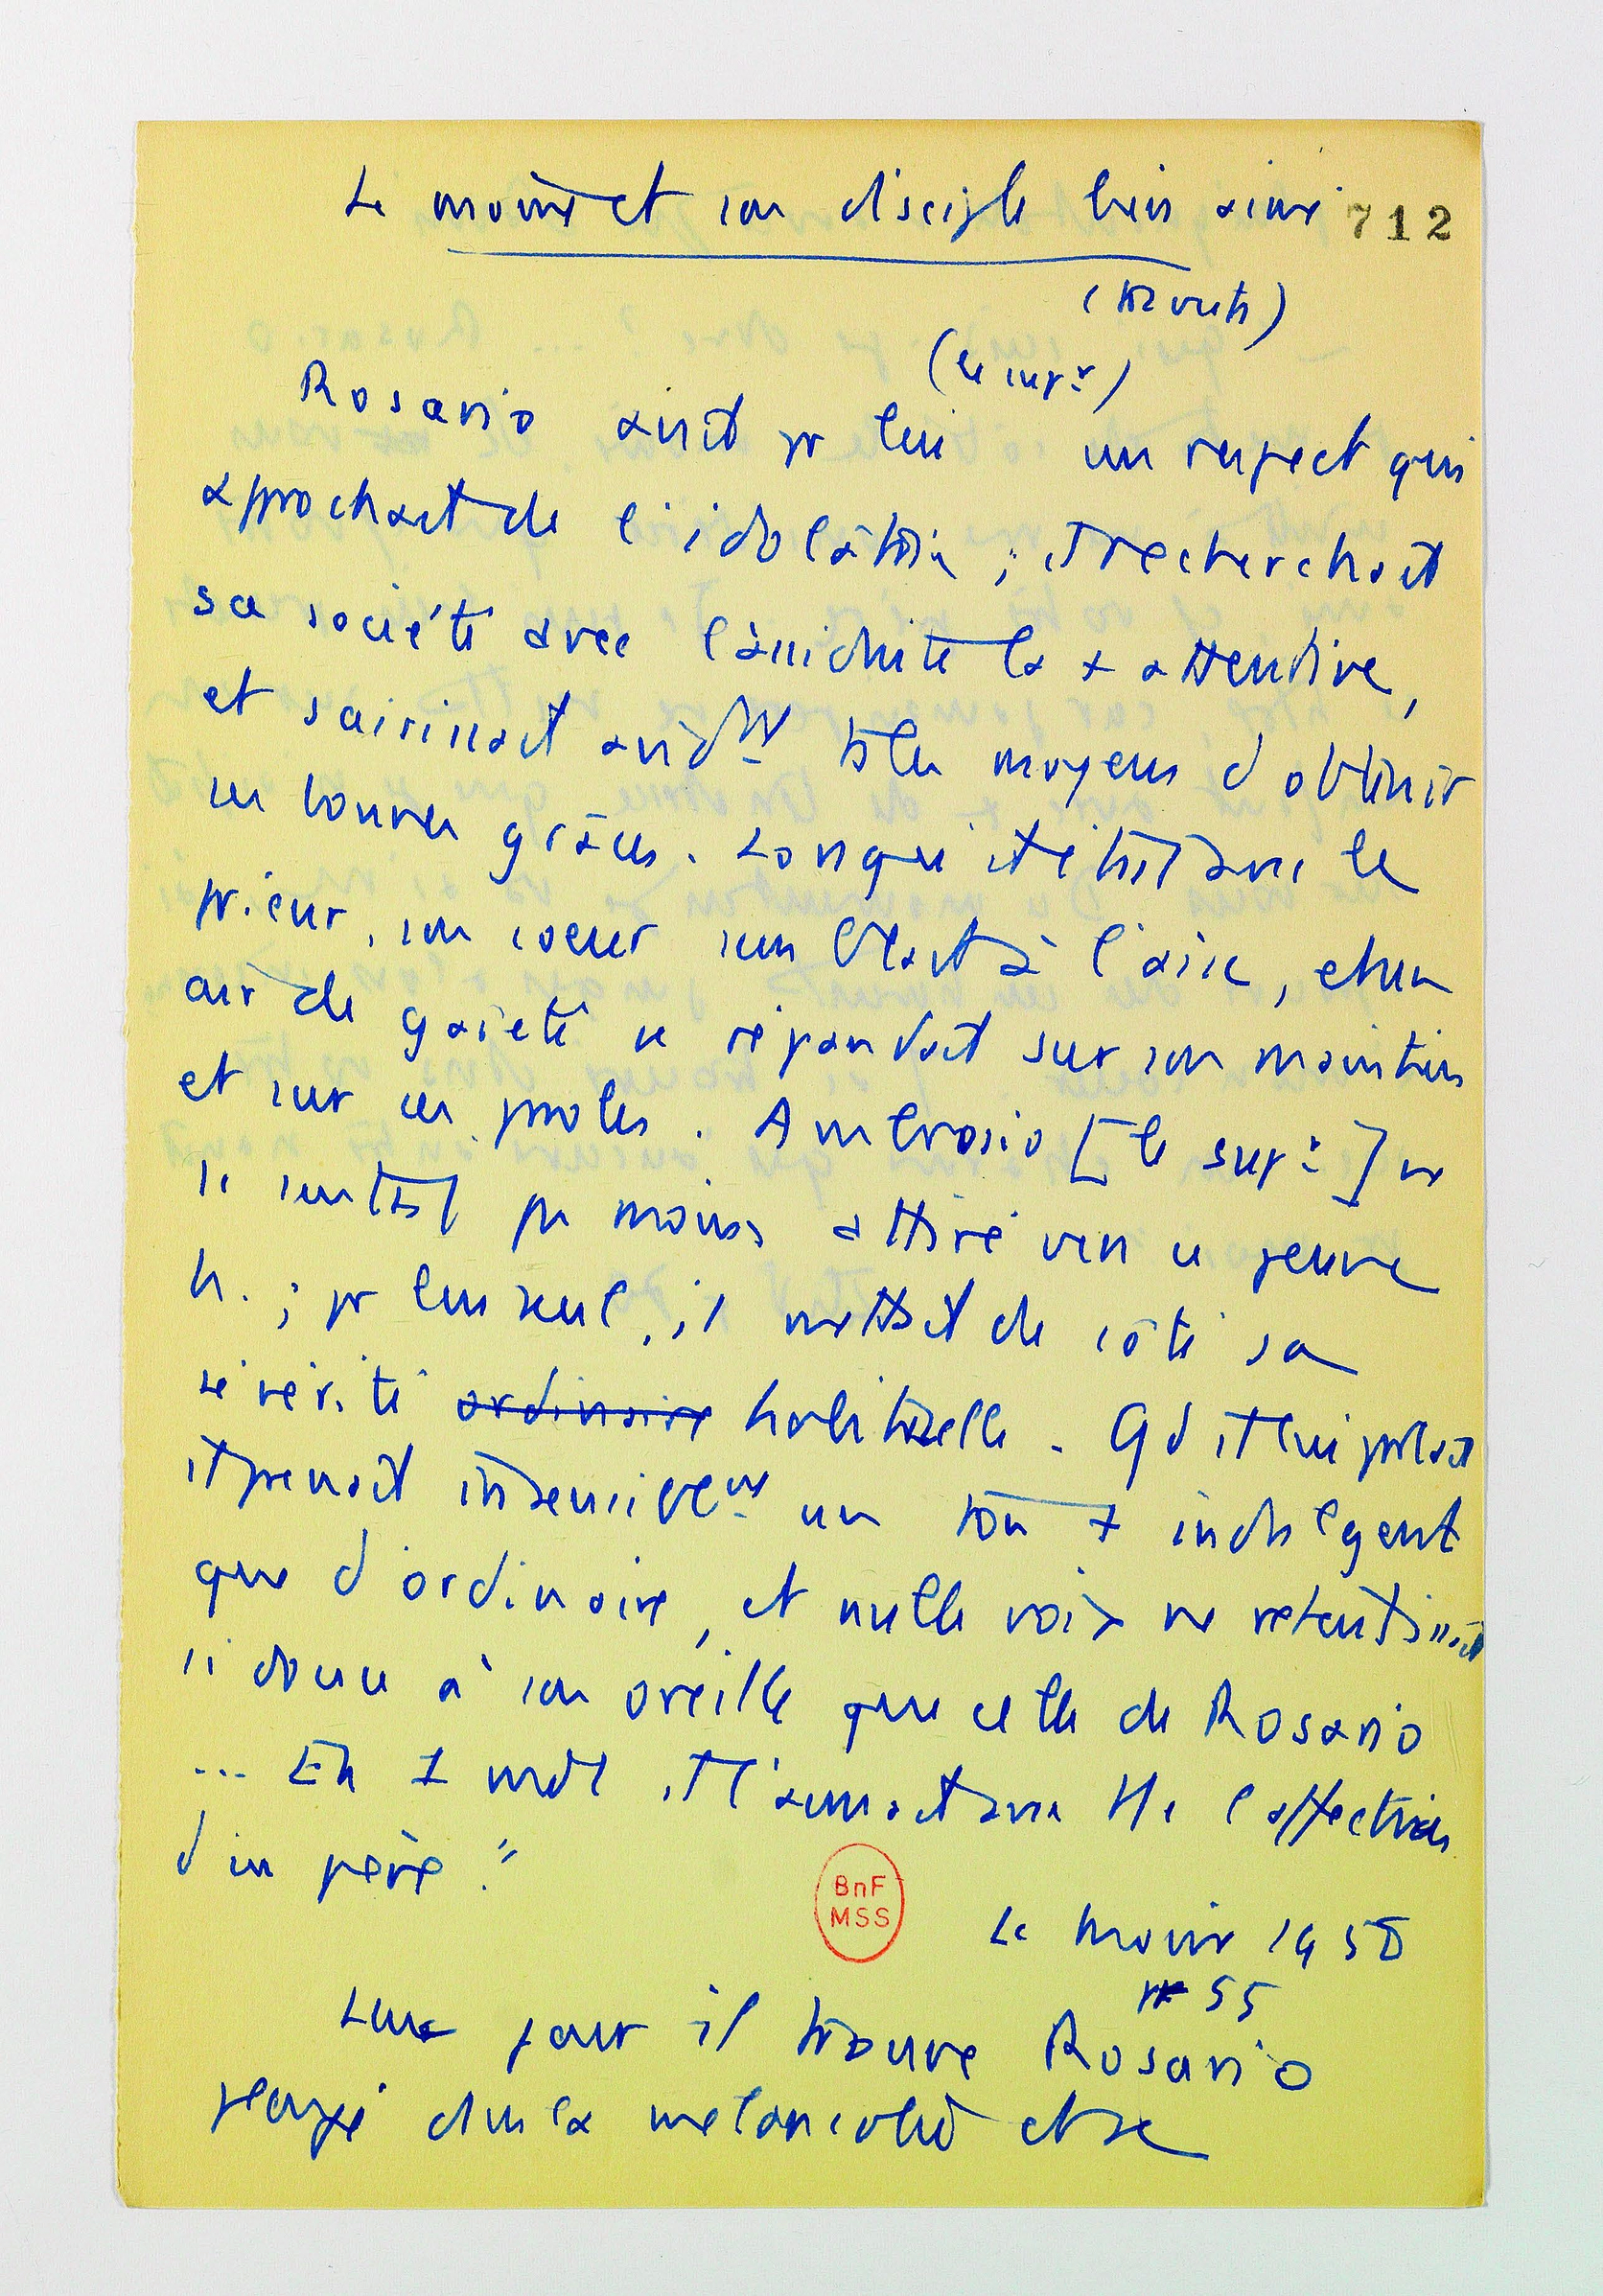 Le moine et son disciple bien aimé
712
(
(le supr)
Rosario avait pr lui un respect qui
approchait de l'idolâtrie ; il recherchait
sa société avec l'assiduité la + attentive,
et saisissait avidmt ts les moyens d'obtenir
ses bonnes grâces. Lorsqu'il était avec le
prieur, son coeur semblait à l'aise, et un
air de gaieté se répandait sur son maintien
et sur ses paroles. Ambrosio [le supr] ne
se sentait pas moins attiré vers ce jeune
h. ; pr lui seul, il mettait de côté sa
sévérité ordinaire habituelle. Qd il lui parlait
il prenait insensiblemt un ton + indulgent
que d'ordinaire, et nulle voix ne retentissait
si douce à son oreille que celle de Rosario
... En 1 mot il l'aimait avec tte l'affection
d'un père."
BnF
MSS
Le moine 1958
55
Un jour il trouve Rosario
plongé dans la mélancolie et se